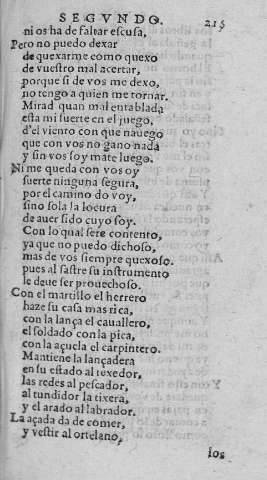 SEGVNDO. 215
ni os ha de faltar escusa,
Pero no puedo dexar
de quexarme como quexo
de vuestro mal acertar,
porque si de vos me dexo,
no tengo a quien me tornar.
Mirad quan mal entablada
esta mi suerte en el juego,
d'el viento con que nauego
que con vos no gano nada
y sin vos soy mate luego.
Ni me queda con vos oy
suerte ninguna segura,
por el camino do voy,
sino sola la locura
de auer sido cuyo soy.
Con lo qual sere contento,
ya que no puedo dichoso,
mas de vos siempre quexoso.
pues al sastre su instrumento
le deue ser prouechoso.
Con el martillo el herrero
haze su casa mas rica,
con la lança el cauallero,
el soldado con la pica,
con la açuela el carpintero.
Mantiene la lançadera
en su estado al texedor,
las redes al pescador,
al tundidor la tixera,
y el arado al labrador.
La açada da de comer,
y vestir al ortelano,
los